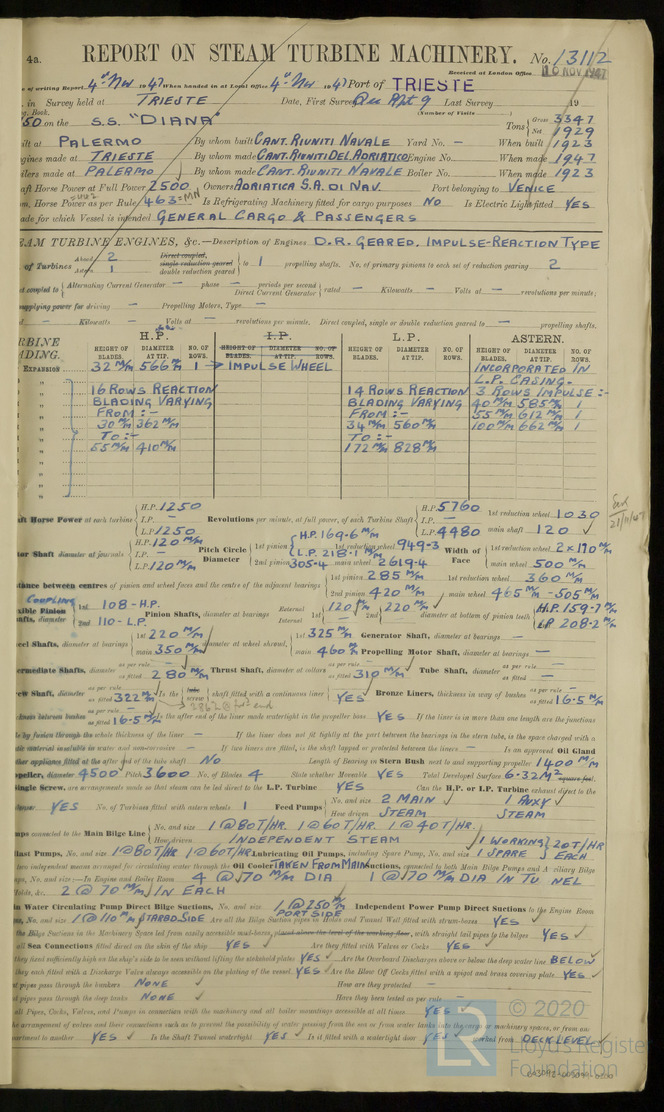 4a. REPORT ON STEAM TURBINE MACHINERY. No. 13112
Received at London Office 10 NOV 1947
of writing Report 4th Nov 1947 When handed in at Local Office 4th Nov 1947 Port of TRIESTE
in Survey held at TRIESTE Date, First Survey Last Survey 19
Book. (Number of Visits)
on the S.S. "DIANA" Tons Gross 3347 Net 1929
at PALERMO By whom built CANT. RIUNITI NAVALE Yard No. — When built 1923
made at TRIESTE By whom made CANT. RIUNITI DEL ADRIATICO Engine No. — When made 1947
made at PALERMO By whom made CANT. RIUNITI NAVALE Boiler No. — When made 1923
Horse Power at Full Power 2500 Owners ADRIATICA S.A. DI NAV. Port belonging to VENICE
Horse Power as per Rule 463 = MN Is Refrigerating Machinery fitted for cargo purposes NO Is Electric Light fitted YES
for which Vessel is intended GENERAL CARGO & PASSENGERS
TURBINE ENGINES, &c.—Description of Engines D.R. GEARED. IMPULSE-REACTION TYPE
of Turbines Ahead 2 Astern 1 Direct coupled, single reduction geared double reduction geared to 1 propelling shafts. No. of primary pinions to each set of reduction gearing 2
coupled to Alternating Current Generator — phase — periods per second Direct Current Generator rated — Kilowatts — Volts at — revolutions per minute;
supplying power for driving — Propelling Motors, Type —
— Kilowatts — Volts at — revolutions per minute. Direct coupled, single or double reduction geared to — propelling shafts.
H.P. I.P. L.P. ASTERN.
HEIGHT OF BLADES. DIAMETER AT TIP. NO. OF ROWS. HEIGHT OF BLADES. DIAMETER AT TIP. NO. OF ROWS. HEIGHT OF BLADES. DIAMETER AT TIP. NO. OF ROWS. HEIGHT OF BLADES. DIAMETER AT TIP. NO. OF ROWS.
EXPANSION 32 M/M 566 M/M 1 → IMPULSE WHEEL INCORPORATED IN
L.P. CASING.
16 ROWS REACTION 14 ROWS REACTION 3 ROWS IMPULSE :-
BLADING VARYING BLADING VARYING 40 M/M 585 M/M 1
FROM :- FROM :- 55 M/M 612 M/M 1
30 M/M 362 M/M 34 M/M 560 M/M 100 M/M 662 M/M 1
TO :- TO :-
55 M/M 410 M/M 172 M/M 828 M/M
Horse Power at each turbine H.P. 1250 I.P. — L.P. 1250 Revolutions per minute, at full power, of each Turbine Shaft H.P. 5760 I.P. — L.P. 4480 1st reduction wheel 1030 main shaft 120
Shaft diameter at journals H.P. 120 M/M I.P. — L.P. 120 M/M Pitch Circle Diameter 1st pinion H.P. 169.6 M/M L.P. 218.1 M/M 2nd pinion 305.4 1st reduction wheel 949.3 main wheel 2619.4 Width of Face 1st reduction wheel 2 x 170 M/M main wheel 500 M/M
between centres of pinion and wheel faces and the centre of the adjacent bearings 1st pinion 285 M/M 2nd pinion 420 M/M 1st reduction wheel 360 M/M main wheel 465 M/M - 505 M/M
COUPLING Pinion shafts, diameter 1st 108 - H.P. 2nd 110 - L.P. Pinion Shafts, diameter at bearings External 120 M/M Internal 2nd 220 M/M diameter at bottom of pinion teeth H.P. 159.7 M/M LP 208.2 M/M
Shafts, diameter at bearings 1st 220 M/M main 350 M/M diameter at wheel shroud, 1st 325 M/M main 460 M/M Generator Shaft, diameter at bearings — Propelling Motor Shaft, diameter at bearings —
Shafts, diameter as per rule — as fitted 280 M/M Thrust Shaft, diameter at collars as per rule — as fitted 310 M/M Tube Shaft, diameter as per rule — as fitted —
Shaft, diameter as per rule — as fitted 322 M/M Is the screw shaft fitted with a continuous liner YES Bronze Liners, thickness in way of bushes as per rule — as fitted 16.5 M/M
between bushes as per rule — as fitted 16.5 M/M Is the after end of the liner made watertight in the propeller boss YES If the liner is in more than one length are the junctions
by fusion through the whole thickness of the liner — If the liner does not fit tightly at the part between the bearings in the stern tube, is the space charged with a
material insoluble in water and non-corrosive — If two liners are fitted, is the shaft lapped or protected between the liners — Is an approved Oil Gland
appliance fitted at the after end of the tube shaft NO Length of Bearing in Stern Bush next to and supporting propeller 1400 M/M
Propeller, diameter 4500 Pitch 3600 No. of Blades 4 State whether Moveable YES Total Developed Surface 6.32 M² square feet.
Single Screw, are arrangements made so that steam can be led direct to the L.P. Turbine YES Can the H.P. or L.P. Turbine exhaust direct to the
YES No. of Turbines fitted with astern wheels 1 Feed Pumps No. and size 2 MAIN 1 AUXY How driven STEAM STEAM
connected to the Main Bilge Line No. and size 1 @ 80 T/HR 1 @ 60 T/HR. 1 @ 40 T/HR. How driven INDEPENDENT STEAM
Ballast Pumps, No. and size 1 @ 80 T/HR 1 @ 60 T/HR Lubricating Oil Pumps, including Spare Pump, No. and size 1 WORKING 1 SPARE 20 T/HR EACH
two independent means arranged for circulating water through the Oil Cooler TAKEN FROM MAIN Suctions, connected to both Main Bilge Pumps and Auxiliary Bilge
No. and size:—In Engine and Boiler Room 4 @ 70 M/M DIA 1 @ 70 M/M DIA IN TUNNEL
Holds, &c. 2 @ 70 M/M IN EACH
Water Circulating Pump Direct Bilge Suctions, No. and size 1 @ 250 M/M PORT SIDE Independent Power Pump Direct Suctions to the Engine Room
No. and size 1 @ 110 M/M STARBD. SIDE Are all the Bilge Suction pipes in Holds and Tunnel Well fitted with strum-boxes YES
the Bilge Suctions in the Machinery Space led from easily accessible mud-boxes, placed above the level of the working floor, with straight tail pipes to the bilges YES
all Sea Connections fitted direct on the skin of the ship YES Are they fitted with Valves or Cocks YES
they fixed sufficiently high on the ship's side to be seen without lifting the stokehold plates YES Are the Overboard Discharges above or below the deep water line BELOW
they each fitted with a Discharge Valve always accessible on the plating of the vessel YES Are the Blow Off Cocks fitted with a spigot and brass covering plate YES
pipes pass through the bunkers NONE How are they protected —
pipes pass through the deep tanks NONE Have they been tested as per rule —
all Pipes, Cocks, Valves, and Pumps in connection with the machinery and all boiler mountings accessible at all times YES
the arrangement of valves and their connections such as to prevent the possibility of water passing from the sea or from water tanks into the cargo or machinery spaces, or from one
compartment to another YES Is the Shaft Tunnel watertight YES Is it fitted with a watertight door YES worked from DECK LEVEL
© 2020
LR Lloyd's Register
Foundation